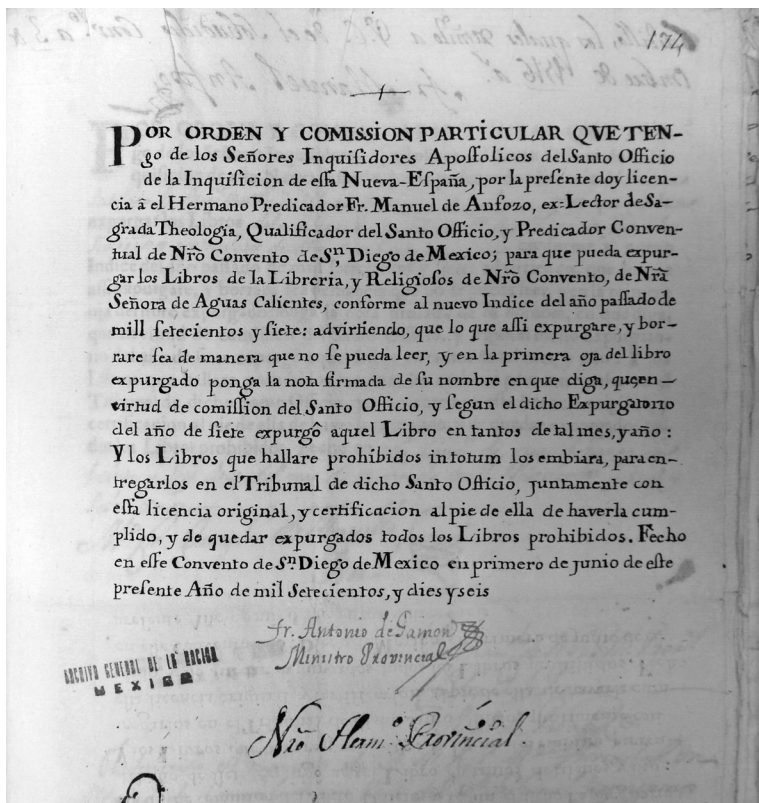 174
POR ORDEN Y COMISSION PARTICULAR QVE TEN-
go de los Señores Inquisidores Apostolicos del Santo Officio
de la Inquisicion de esta Nueva-España, por la presente doy licen-
cia â el Hermano Predicador Fr. Manuel de Anfozo, ex-Lector de Sa-
grada Theologia, Qualificador del Santo Officio, y Predicador Conven-
tual de Nrõ Convento de Sⁿ. Diego de Mexico; para que pueda expur-
gar los Libros de la Libreria, y Religiosos de Nrõ Convento, de Nrã
Señora de Aguas Calientes, conforme al nuevo Indice del año passado de
mill setecientos y siete: advirtiendo, que lo que assi expurgare, y bor-
rare sea de manera que no se pueda leer, y en la primera oja del libro
expurgado ponga la nota firmada de su nombre en que diga, que en
virtud de comission del Santo Officio, y segun el dicho Expurgatorio
del año de siete expurgô aquel Libro en tantos de tal mes, y año:
Y los Libros que hallare prohibidos in totum los embiara, para en-
tregarlos en el Tribunal de dicho Santo Officio, juntamente con
esta licencia original, y certificacion al pie de ella de haverla cum-
plido, y de quedar expurgados todos los Libros prohibidos. Fecho
en este Convento de Sⁿ. Diego de Mexico en primero de junio de este
presente Año de mil Setecientos, y dies y seis
fr. Antonio de Gamon
Ministro Provincial
ARCHIVO GENERAL DE LA NACION
MEXICO
Nrõ Herm.º Provincial.